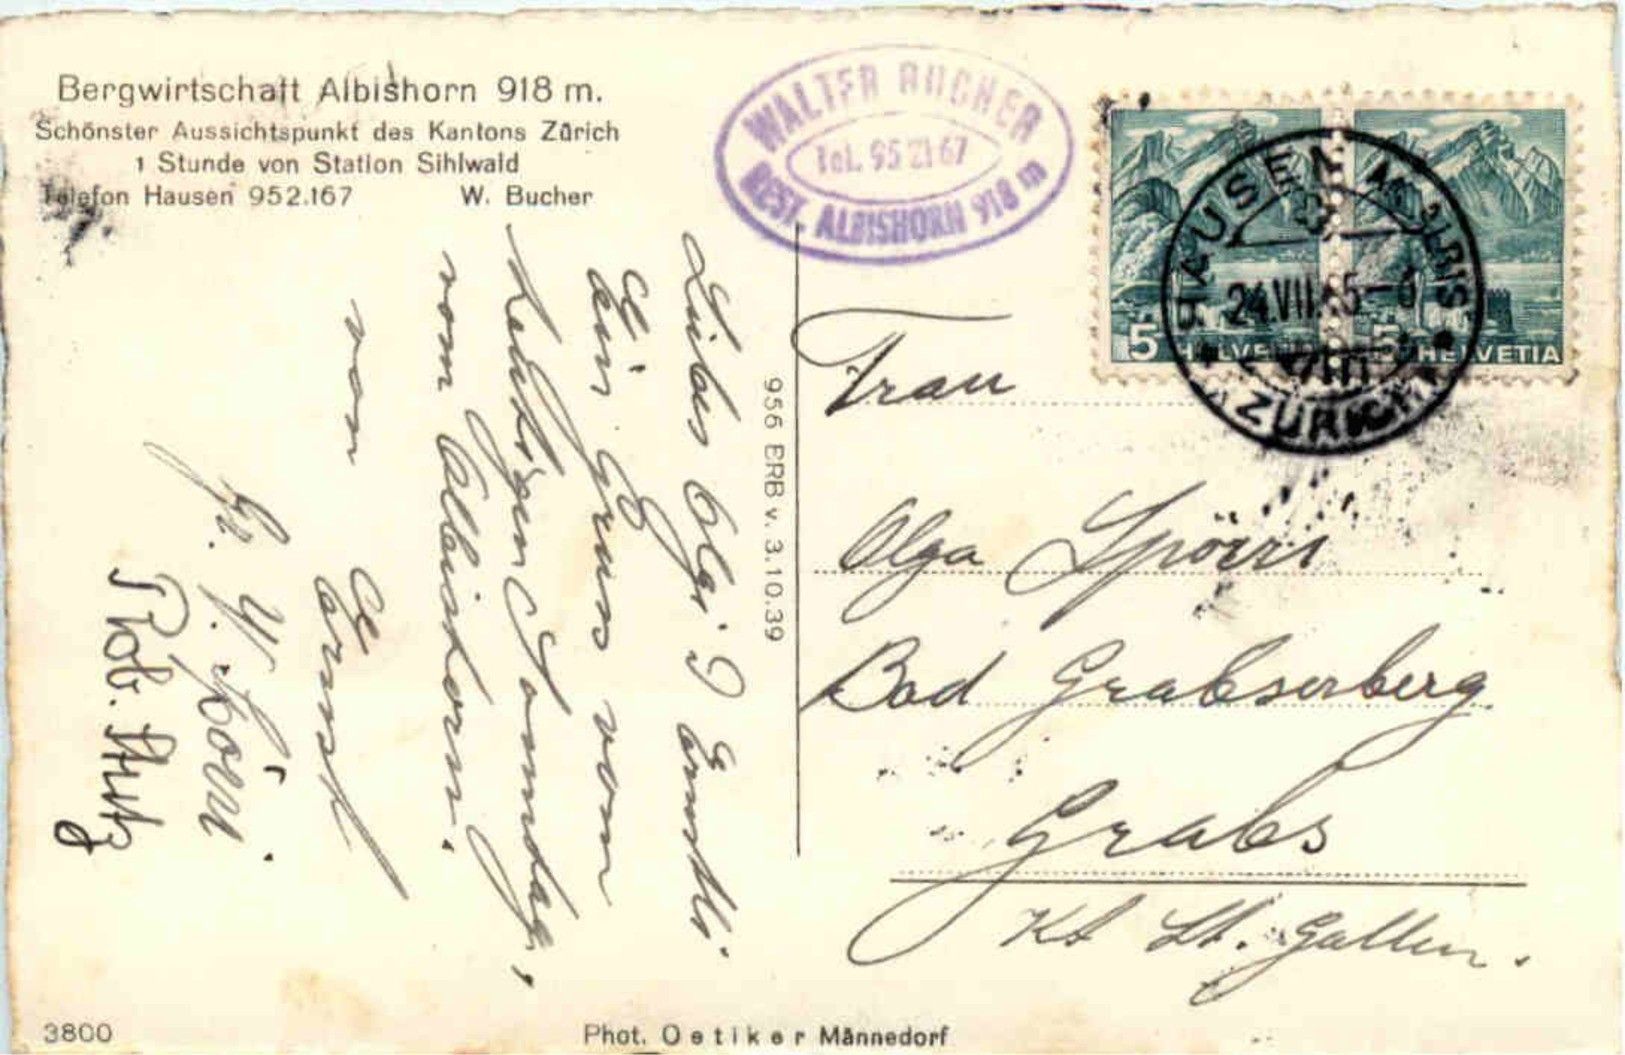 Bergwirtschaft Albishorn 918 m.
Schönster Aussichtspunkt des Kantons Zürich
1 Stunde von Station Sihlwald
Telefon Hausen 952.167 W. Bucher
WALTER BUCHER
Tel. 95 21 67
REST. ALBISHORN 918 m
5 HELVETIA
5 HELVETIA
HAUSEN AM ALBIS
24.VII.45-8
ZÜRICH
Liebes Olgi & Ernstli
Ein Gruss vom
heutigen Sonntag,
vom Albishorn.
von
Ernst
Fr. Spörri
Rob.
956 BRB v. 3.10.39
Frau
Olga Spörri
Bad Grabserberg
Grabs
Kt St. Gallen.
3800
Phot. Oetiker Männedorf